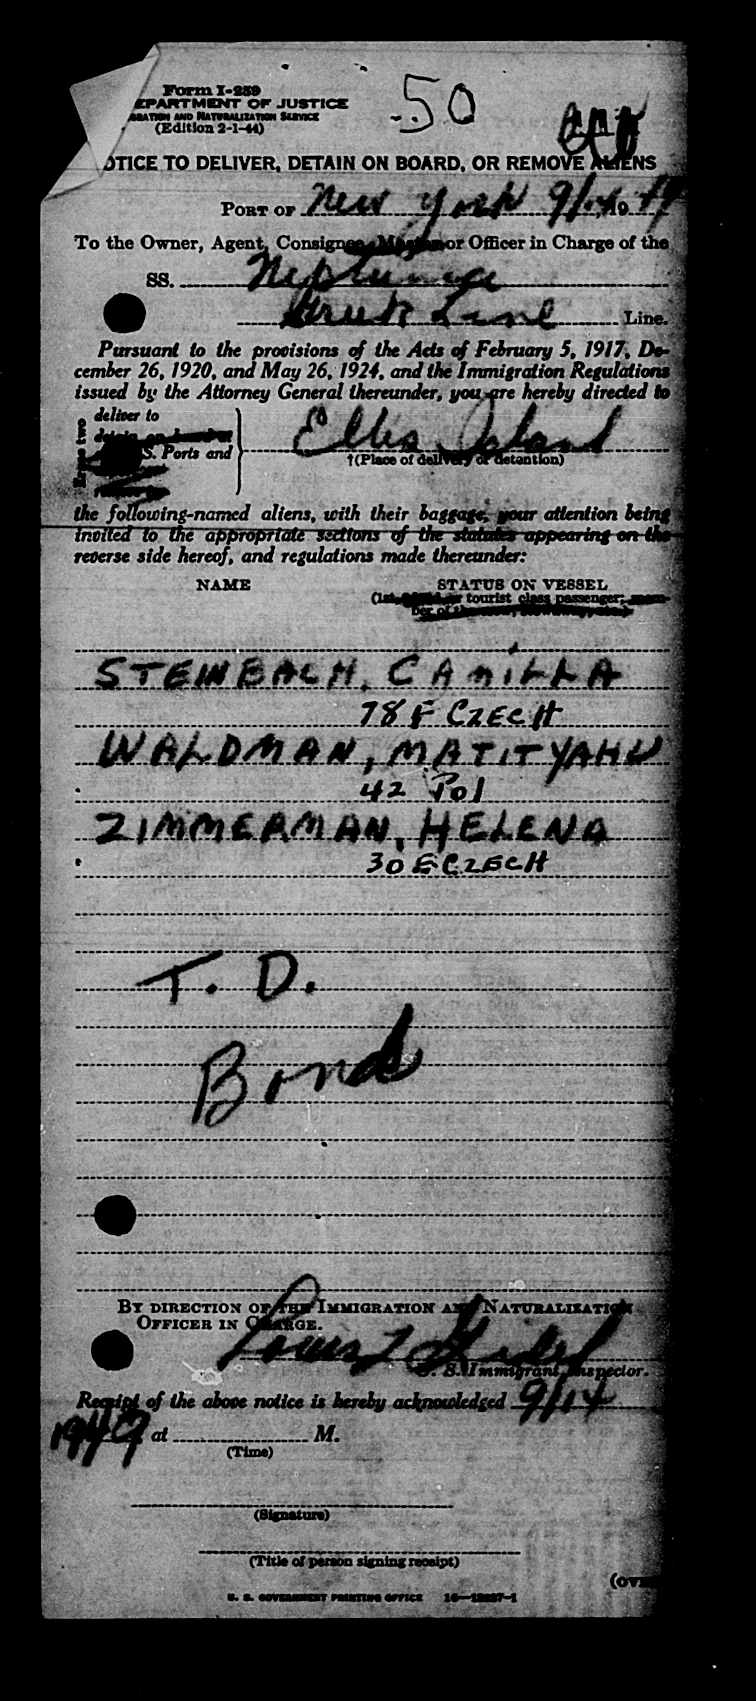 Form I-259
EPARTMENT OF JUSTICE
RATION AND NATURALIZATION SERVICE
(Edition 2-1-44)
50
OTICE TO DELIVER, DETAIN ON BOARD, OR REMOVE ALIENS
PORT OF New York 9/14, 1949
To the Owner, Agent, Consignee, Master or Officer in Charge of the
SS. Neptunia
Greek Line Line.
Pursuant to the provisions of the Acts of February 5, 1917, De-
cember 26, 1920, and May 26, 1924, and the Immigration Regulations
issued by the Attorney General thereunder, you are hereby directed to
deliver to
S. Ports and
Ellis Island
†(Place of delivery or detention)
the following-named aliens, with their baggage, your attention being
invited to the appropriate sections of the statutes appearing on the
reverse side hereof, and regulations made thereunder:
NAME STATUS ON VESSEL
(1st, or tourist class passenger;
STEINBACH, CAMILLA
78 F CZECH
WALDMAN, MATITYAHU
42 Pol
ZIMMERMAN, HELENA
30 F CZECH
T. D.
Bond
BY DIRECTION OF THE IMMIGRATION AND NATURALIZATION
OFFICER IN CHARGE.
U. S. Immigrant Inspector.
Receipt of the above notice is hereby acknowledged 9/14
1949 at M.
(Time)
(Signature)
(Title of person signing receipt)
(OVE
U. S. GOVERNMENT PRINTING OFFICE